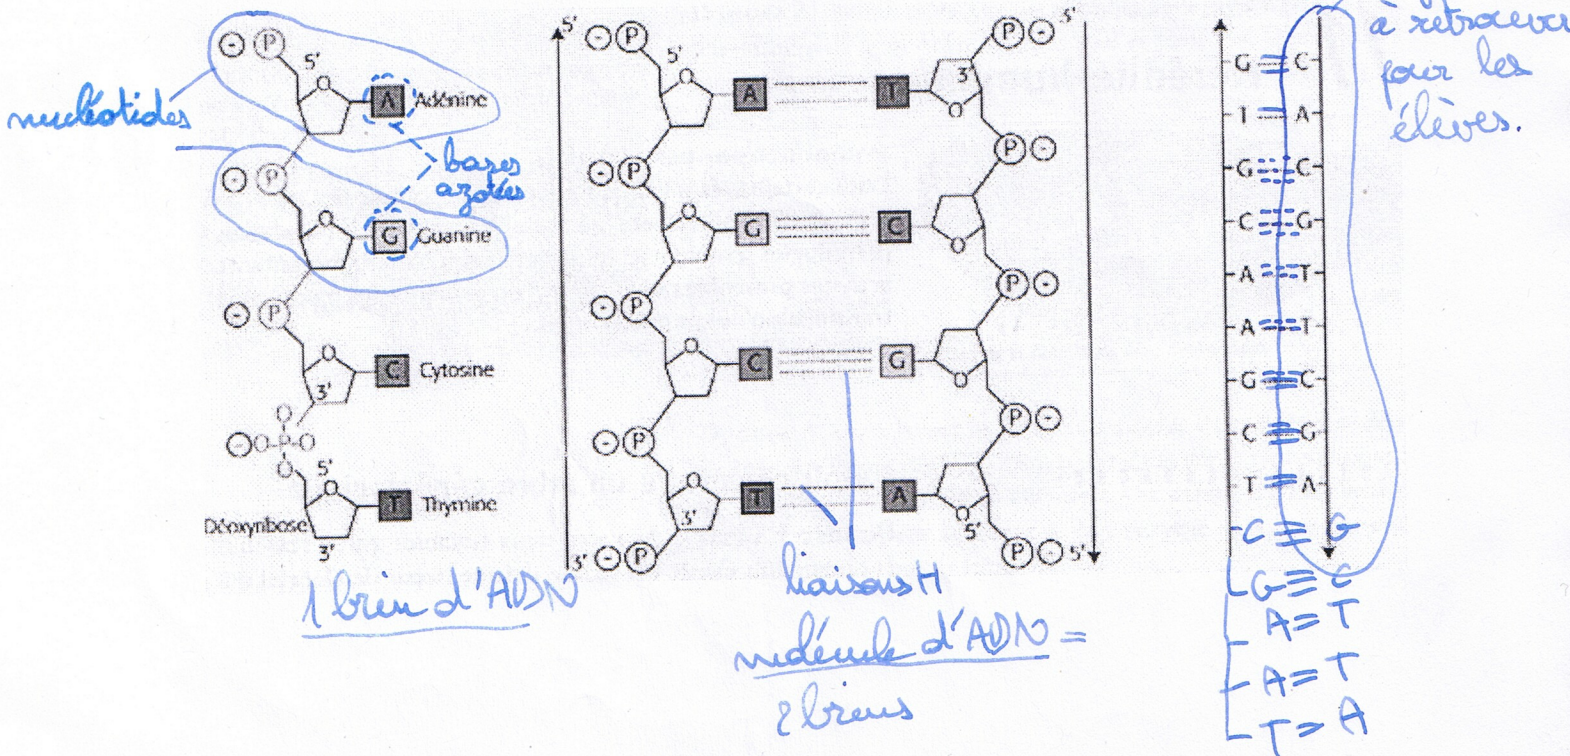 nucléotides
P
5'
O
A Adénine
bases
azotées
P
O
G Guanine
P
O
C Cytosine
3'
O
- O P O
O
5'
O
T Thymine
Désoxyribose
3'
1 brin d'ADN
5'
3'
- P
P -
5'
O
A
T
3'
O
- P
P -
O
G
C
O
- P
P -
O
C
G
O
- P
P -
O
T
A
O
3'
5'
- P
P -
3'
5'
liaisons H
molécule d'ADN =
2 brins
à retrouver
pour les
élèves.
G C
T A
G C
C G
A T
A T
G C
C G
T A
C ≡ G
G ≡ C
A = T
A = T
T = A